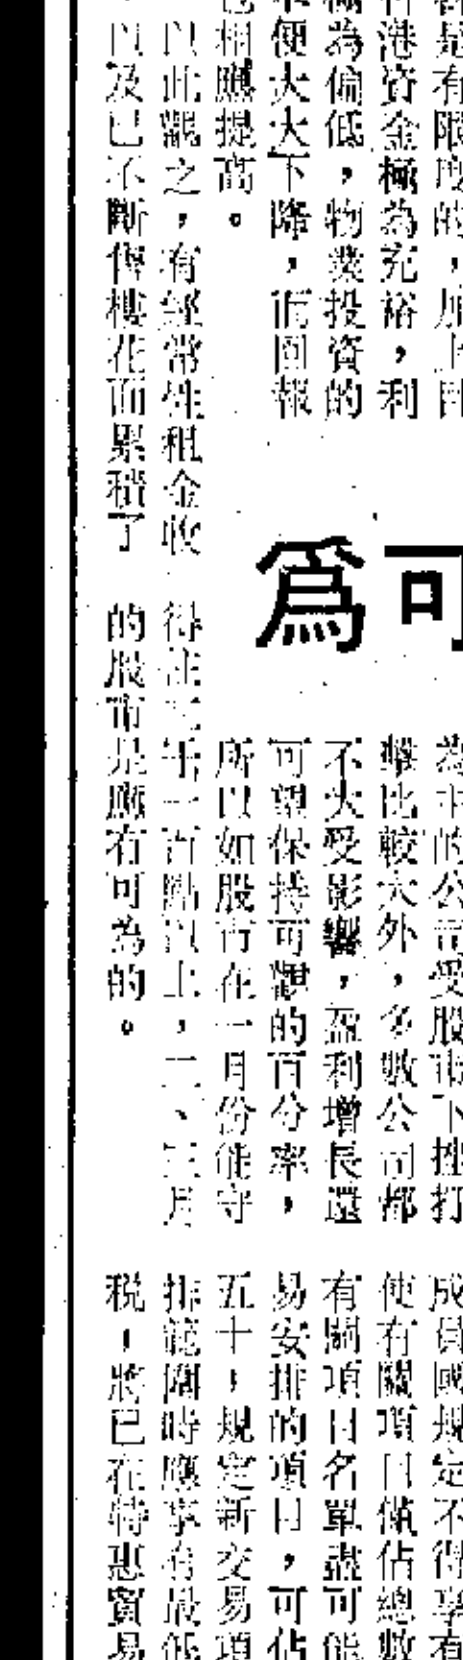 是有限度的，加上目
港資金極為充裕，利
極為偏低，物業投資的
便大大下降，而回報
相應提高。
以此觀之，有經常性租金收
以及已不斷售樓花而累積了
可為
為主的公司受股市下挫打
擊比較大外，多數公司都
不大受影響，盈利增長還
可望保持可觀的百分率，
所以如股市在一月份能守
得住二千一百點以上，二、三月
的股市是應有可為的。
成員國規定不得享有
使有關項目僅佔總數
有關項目名單盡可能
易安排的項目，可佔
五十，規定新交易項
排範圍時應享有最低
税，將已在特惠貿易